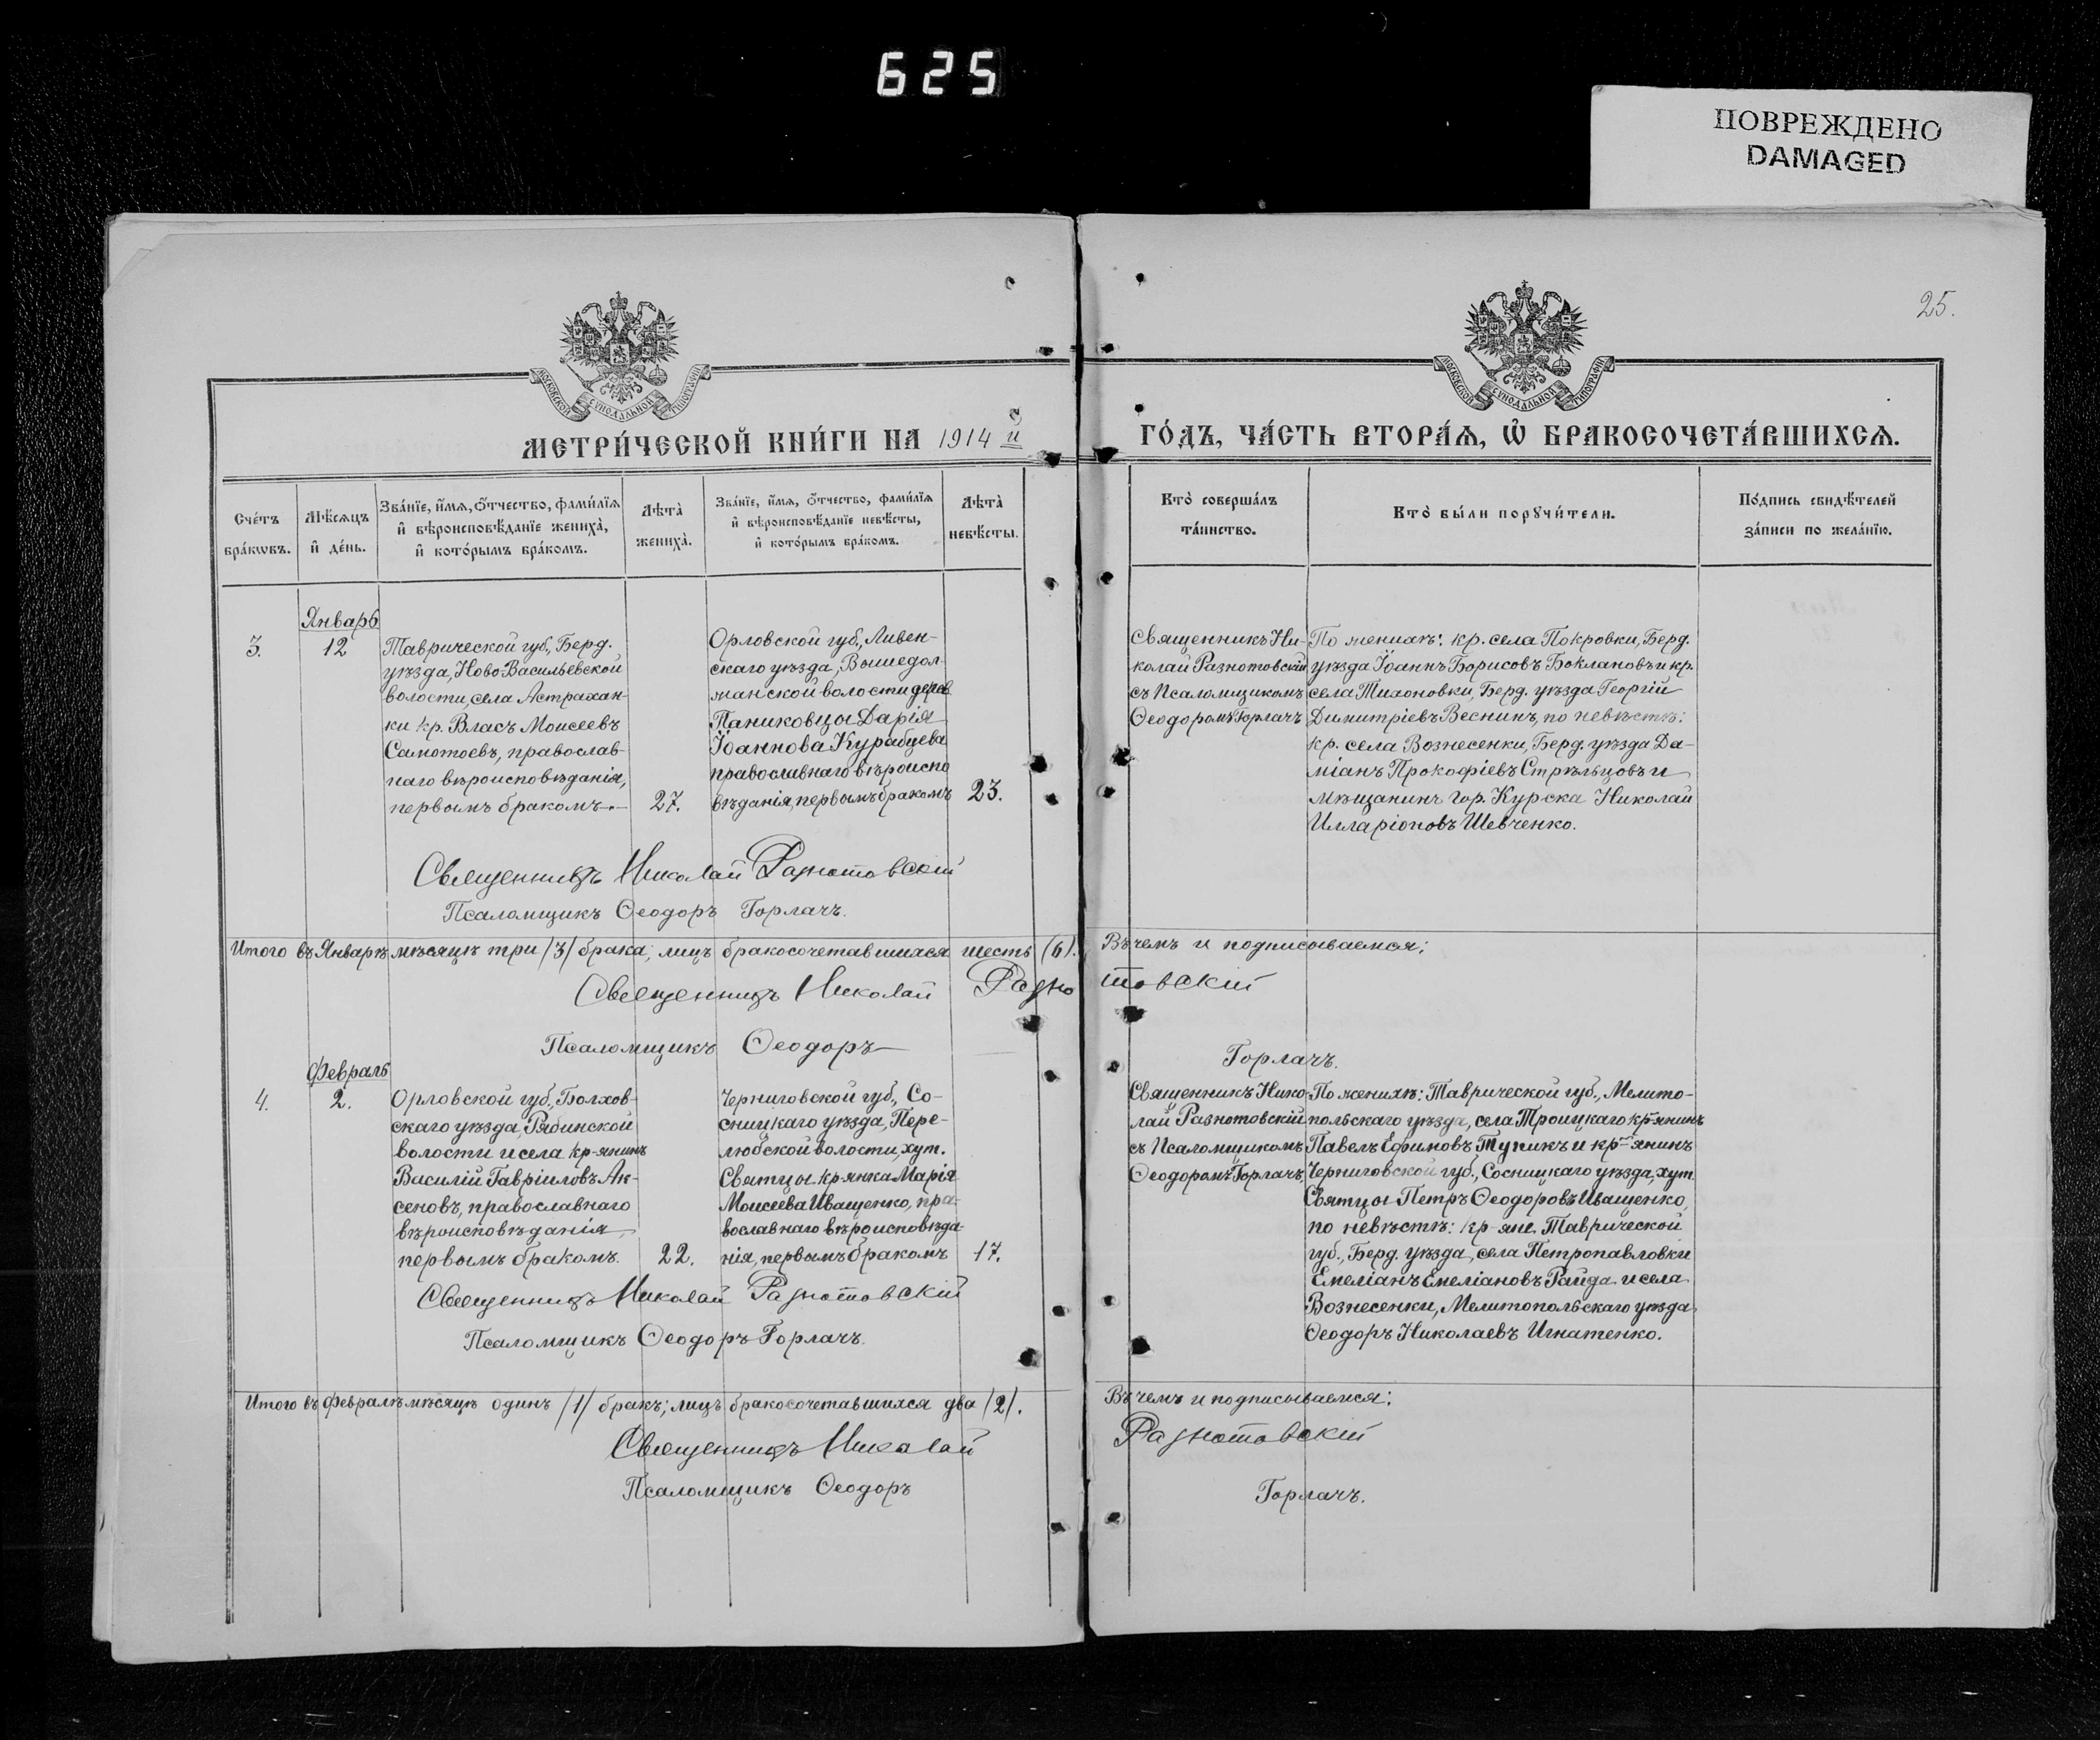 625
ПОВРЕЖДЕНО
DAMAGED
25.
МОСКОВСКОЙ СУНОДАЛЬНОЙ ТИПОГРАФІИ
МОСКОВСКОЙ СУНОДАЛЬНОЙ ТИПОГРАФІИ
МЕТРИ́ЧЕСКОЙ КНИ́ГИ НА 1914 й
ГО́ДЪ, ЧА́СТЬ ВТОРА́Ѧ, Ѽ БРАКОСОЧЕТА́ВШИХСѦ.
Сче́тъ
бра́кѡвъ.
Мѣ́сѧцъ
и҆ де́нь.
Зва́нїе, и҆́мѧ, ѻ҆́тчество, фами́лїѧ
и҆ вѣроисповѣ́данїе жениха̀,
и҆ кото́рымъ бра́комъ.
Лѣта̀
жениха̀.
Зва́нїе, и҆́мѧ, ѻ҆́тчество, фами́лїѧ
и҆ вѣроисповѣ́данїе невѣ́сты,
и҆ кото́рымъ бра́комъ.
Лѣта̀
невѣ́сты.
Кто̀ соверша́лъ
та́инство.
Кто̀ бы́ли порꙋчи́тели.
По́дпись свидѣ́телей
за́писи по жела́нїю.
3.
Январь
12
Таврической губ., Берд.
уѣзда, Ново Васильевской
волости, села Астрахан-
ки кр. Власъ Моисеевъ
Самотоевъ, православ-
наго вѣроисповѣданія,
первымъ бракомъ.
27.
Орловской губ., Ливен-
скаго уѣзда, Вышедол-
жанской волости дерев.
Паниковцы Дарія
Іоаннова Курабцева
православнаго вѣроиспо
вѣданія, первымъ бракомъ
23.
Священникъ Ни-
колай Разнотовскій
съ Псаломщикомъ
Ѳеодоромъ Горлачъ
По женихѣ: кр. села Покровки, Берд.
уѣзда Іоаннъ Борисовъ Боклановъ и кр.
села Тихоновки, Берд. уѣзда Георгій
Димитріевъ Веснинъ, по невѣстѣ:
кр. села Вознесенки, Берд. уѣзда Да-
міанъ Прокофіевъ Стрѣльцовъ и
мѣщанинъ гор. Курска Николай
Илларіоновъ Шевченко.
Священникъ Николай Разнотовскій
Псаломщикъ Ѳеодоръ Горлачъ.
Итого въ Январѣ мѣсяцѣ три /3/ брака; лицъ бракосочетавшихся шесть (6). Въ чемъ и подписываемся:
Священникъ Николай Разнотовскій
Псаломщикъ Ѳеодоръ Горлачъ.
4.
Февраль
2.
Орловской губ., Болхов-
скаго уѣзда, Рябинской
волости и села кр-янинъ
Василій Гавріиловъ Ак-
сеновъ, православнаго
вѣроисповѣданія,
первымъ бракомъ.
22.
Черниговской губ., Со-
сницкаго уѣзда, Пере-
любской волости, хут.
Святцы кр-янка Марія
Моисеева Иващенко, пра-
вославнаго вѣроисповѣда-
нія, первымъ бракомъ
17.
Священникъ Нико-
лай Разнотовскій
съ Псаломщикомъ
Ѳеодоромъ Горлачъ.
По женихѣ: Таврической губ., Мелито-
польскаго уѣзда, села Троицкаго кр-янинъ
Павелъ Ефимовъ Тупикъ и кр-янинъ
Черниговской губ., Сосницкаго уѣзда, хут.
Святцы Петръ Ѳеодоровъ Иващенко,
по невѣстѣ: кр-яне Таврической
губ., Берд. уѣзда, села Петропавловки
Емеліанъ Емеліановъ Райда и села
Вознесенки, Мелитопольскаго уѣзда
Ѳеодоръ Николаевъ Игнатенко.
Священникъ Николай Разнотовскій
Псаломщикъ Ѳеодоръ Горлачъ.
Итого въ Февралѣ мѣсяцѣ одинъ /1/ бракъ; лицъ бракосочетавшихся два /2/. Въ чемъ и подписываемся:
Священникъ Николай Разнотовскій
Псаломщикъ Ѳеодоръ Горлачъ.